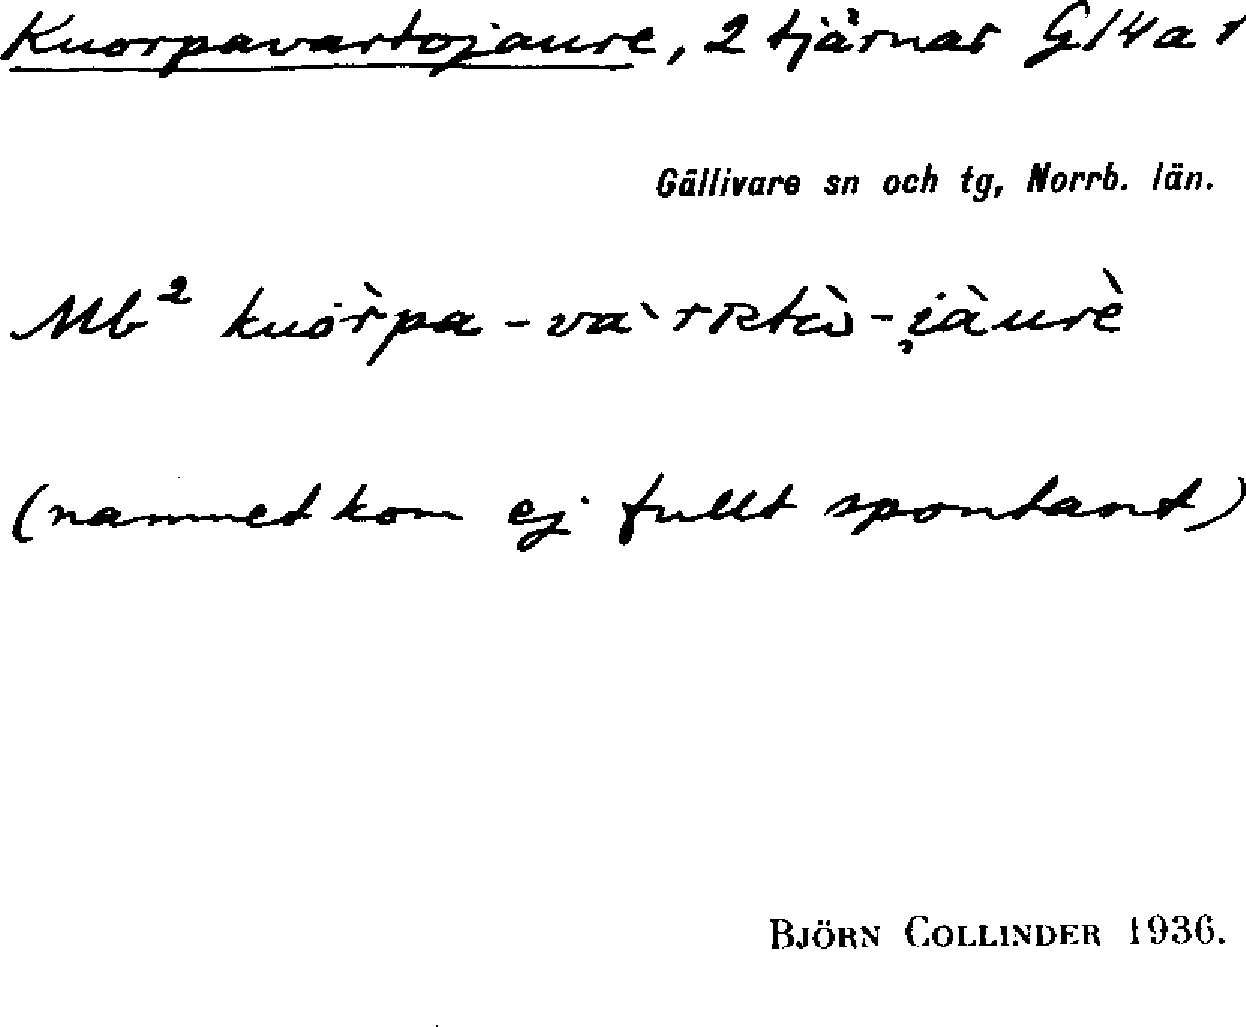 Kuorpavartojaure, 2 tjärnar G14a1
Gällivare sn och tg, Norrb. län.
Mb²
(namnet kom ej fullt spontant)
BJÖRN COLLINDER 1936.